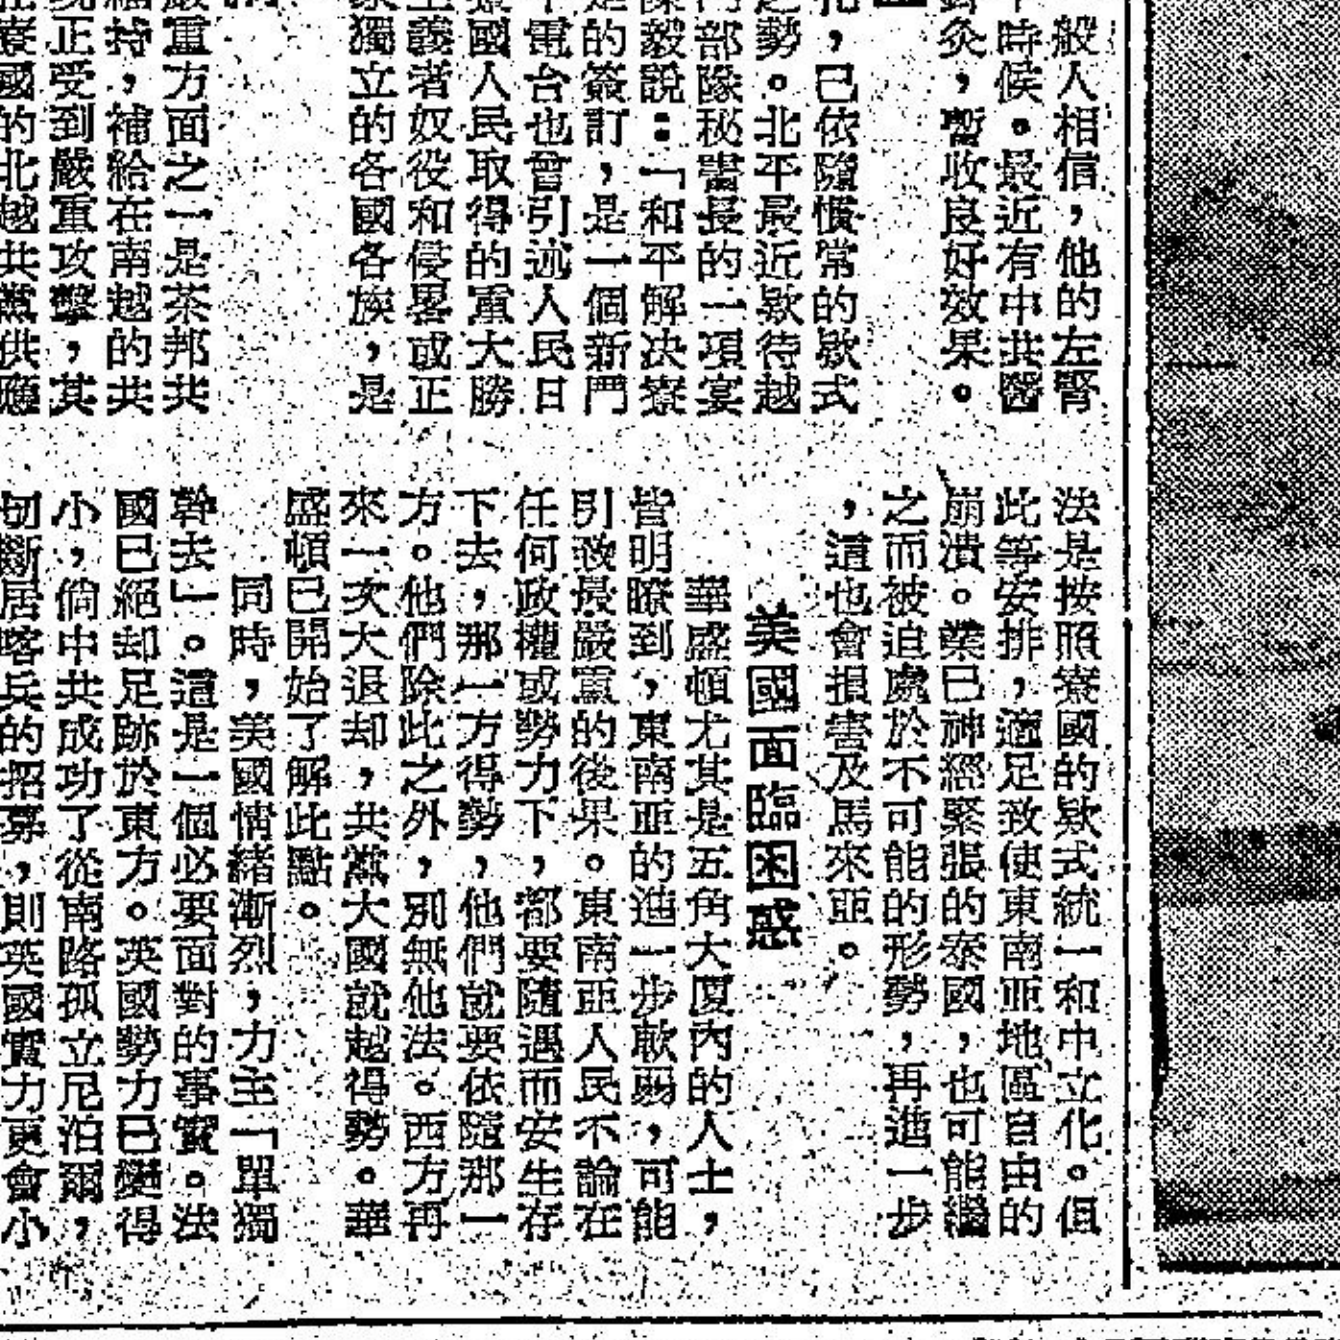 般人相信，他的左腎
時候。最近有中共醫
灸，暫收良好效果。
，已依隨慣常的欵式
之勢。北平最近欵待越
部隊秘書長的一項宴
陳毅說：「和平解決寮
的簽訂，是一個新鬥
電台也曾引述人民日
國人民取得的重大勝
主義者奴役和侵畧或正
獨立的各國各族，是
嚴重方面之一是茶邦共
持，補給在南越的共
正受到嚴重攻擊，其
寮國的北越共黨供應
法是按照寮國的欵式統一和中立化。但
此等安排，適足致使東南亞地區自由的
崩潰。業已神經緊張的泰國，也可能繼
之而被迫處於不可能的形勢，再進一步
，這也會損害及馬來亞。
美國面臨困惑
華盛頓尤其是五角大厦內的人士，
皆明瞭到，東南亞的進一步軟弱，可能
引致最嚴重的後果。東南亞人民不論在
任何政權或勢力下，都要隨遇而安生存
下去，那一方得勢，他們就要依隨那一
方。他們除此之外，別無他法。西方再
來一次大退却，共黨大國就越得勢。華
盛頓已開始了解此點。
同時，美國情緒漸烈，力主「單獨
幹去」。這是一個必要面對的事實。法
國已絕却足跡於東方。英國勢力已變得
小，倘中共成功了從南路孤立尼泊爾，
切斷居喀兵的招募，則英國實力更會小